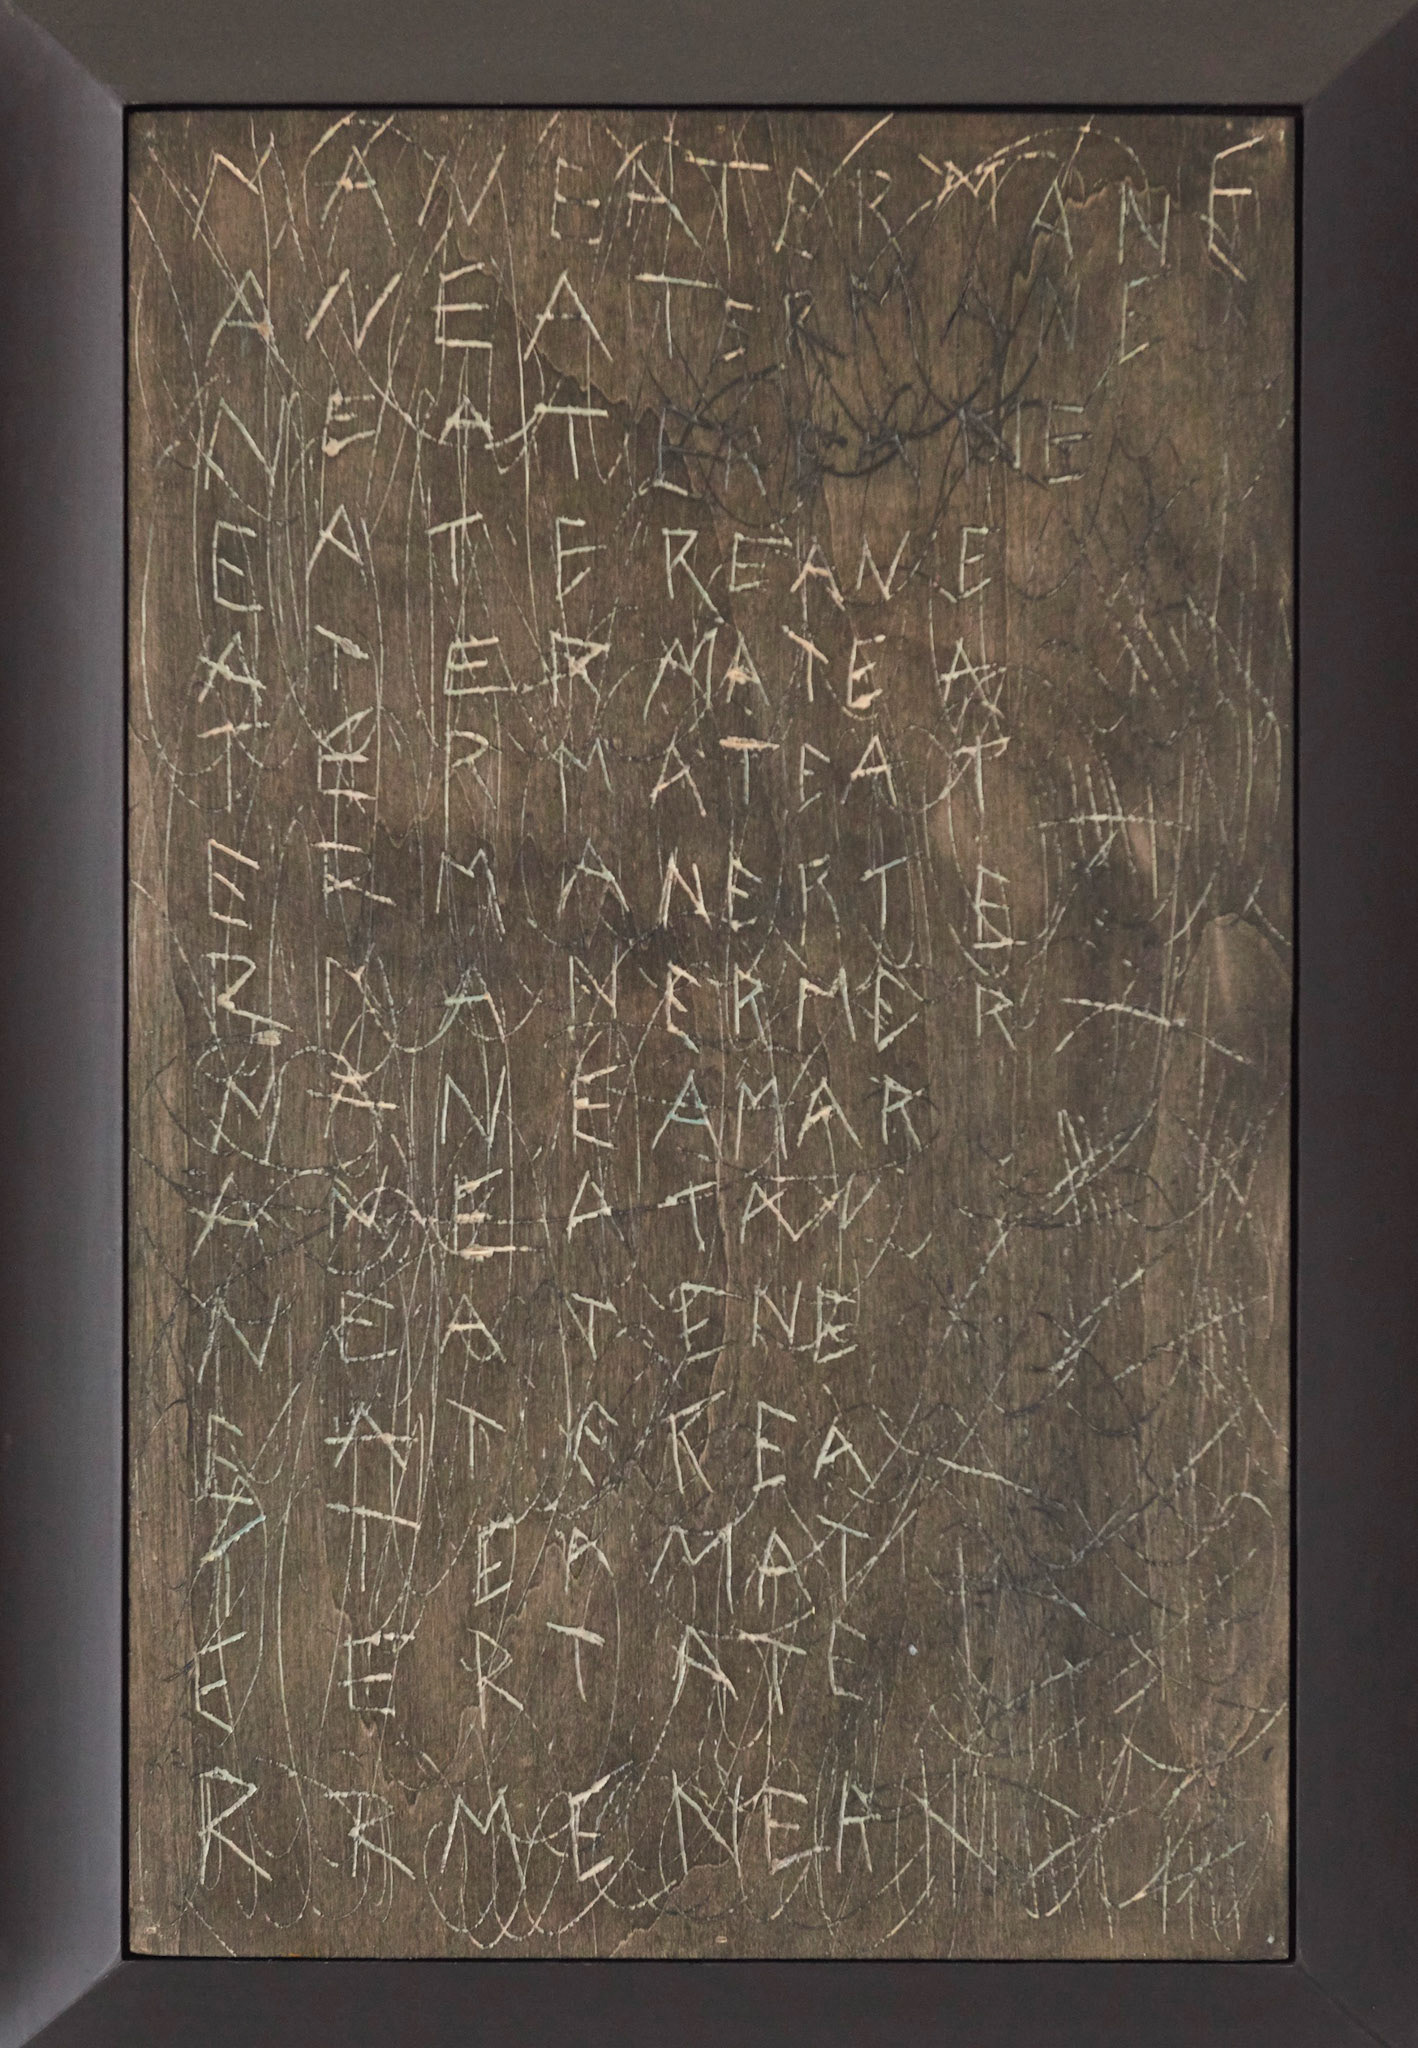 MANEATERMANE
ANEATERMANE
NEATERMANE
EATEREANE
ATERMATEA
TERMATEAT
ERMANERTE
RMANERMER
MANEAMAR
ANEATAN
NEATENE
EATEREA
ATEAMAT
TERTATE
ERMENEAN